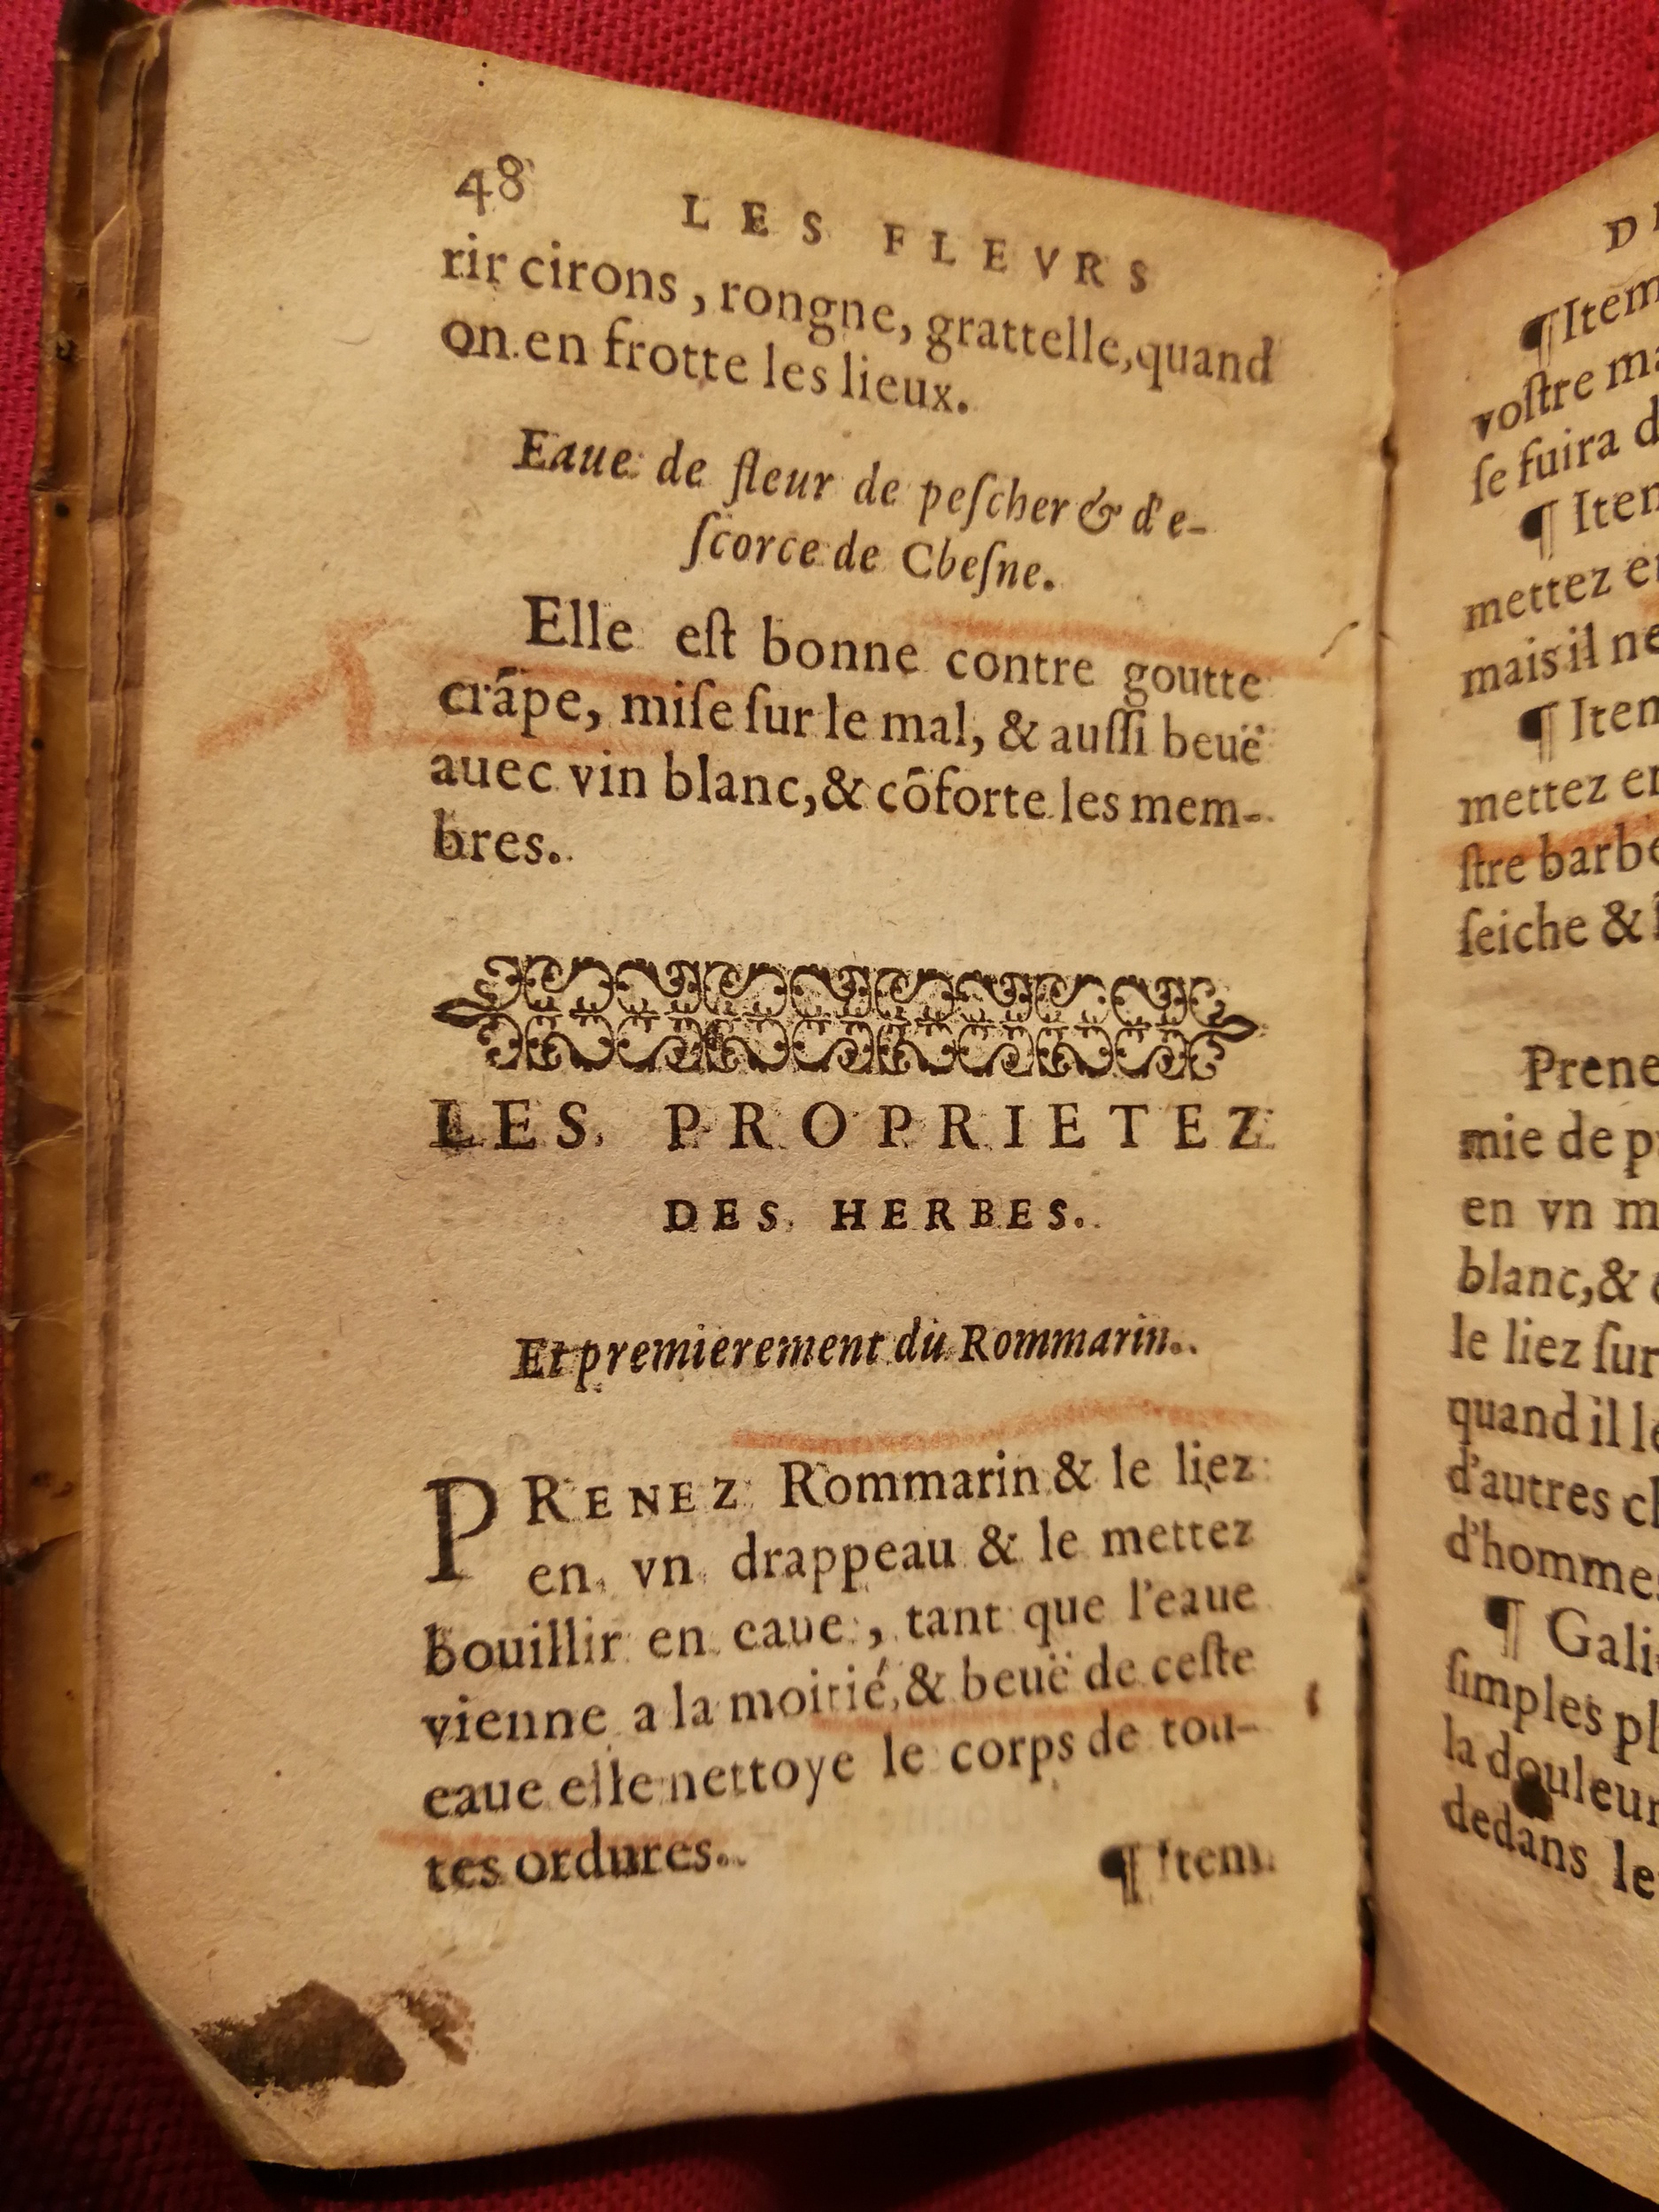 48
LES FLEVRS
rir cirons, rongne, grattelle, quand
on en frotte les lieux.
Eaue de fleur de peſcher & d'e-
ſcorce de Cheſne.
Elle eſt bonne contre goutte
crãpe, miſe ſur le mal, & auſſi beuë
auec vin blanc, & cõforte les mem-
bres.
LES PROPRIETEZ
DES HERBES.
Et premierement du Rommarin.
PRENEZ Rommarin & le liez
en vn drappeau & le mettez
bouillir en eaue, tant que l'eaue
vienne a la moitié, & beuë de ceſte
eaue elle nettoye le corps de tou-
tes ordures.
¶ Item
¶ Item
voſtre
ſe fuira
¶
mettez
mais il
¶
mettez
ſtre
ſeiche &
mie de
en vn
blanc, &
le liez ſur
quand il
d'autres
¶
ſimples
la
dedans